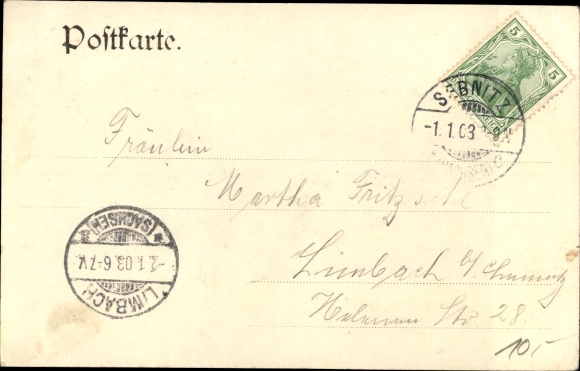 Postkarte.
5 5
SEBNITZ
-1.1.03 8-9V
(SACHSEN)
Fräulein
Martha Fritzsche
Limbach b/Chemnitz
Helenen Str. 28
LIMBACH
-2.1.03.6-7V.
*(SACHSEN)*
10,-